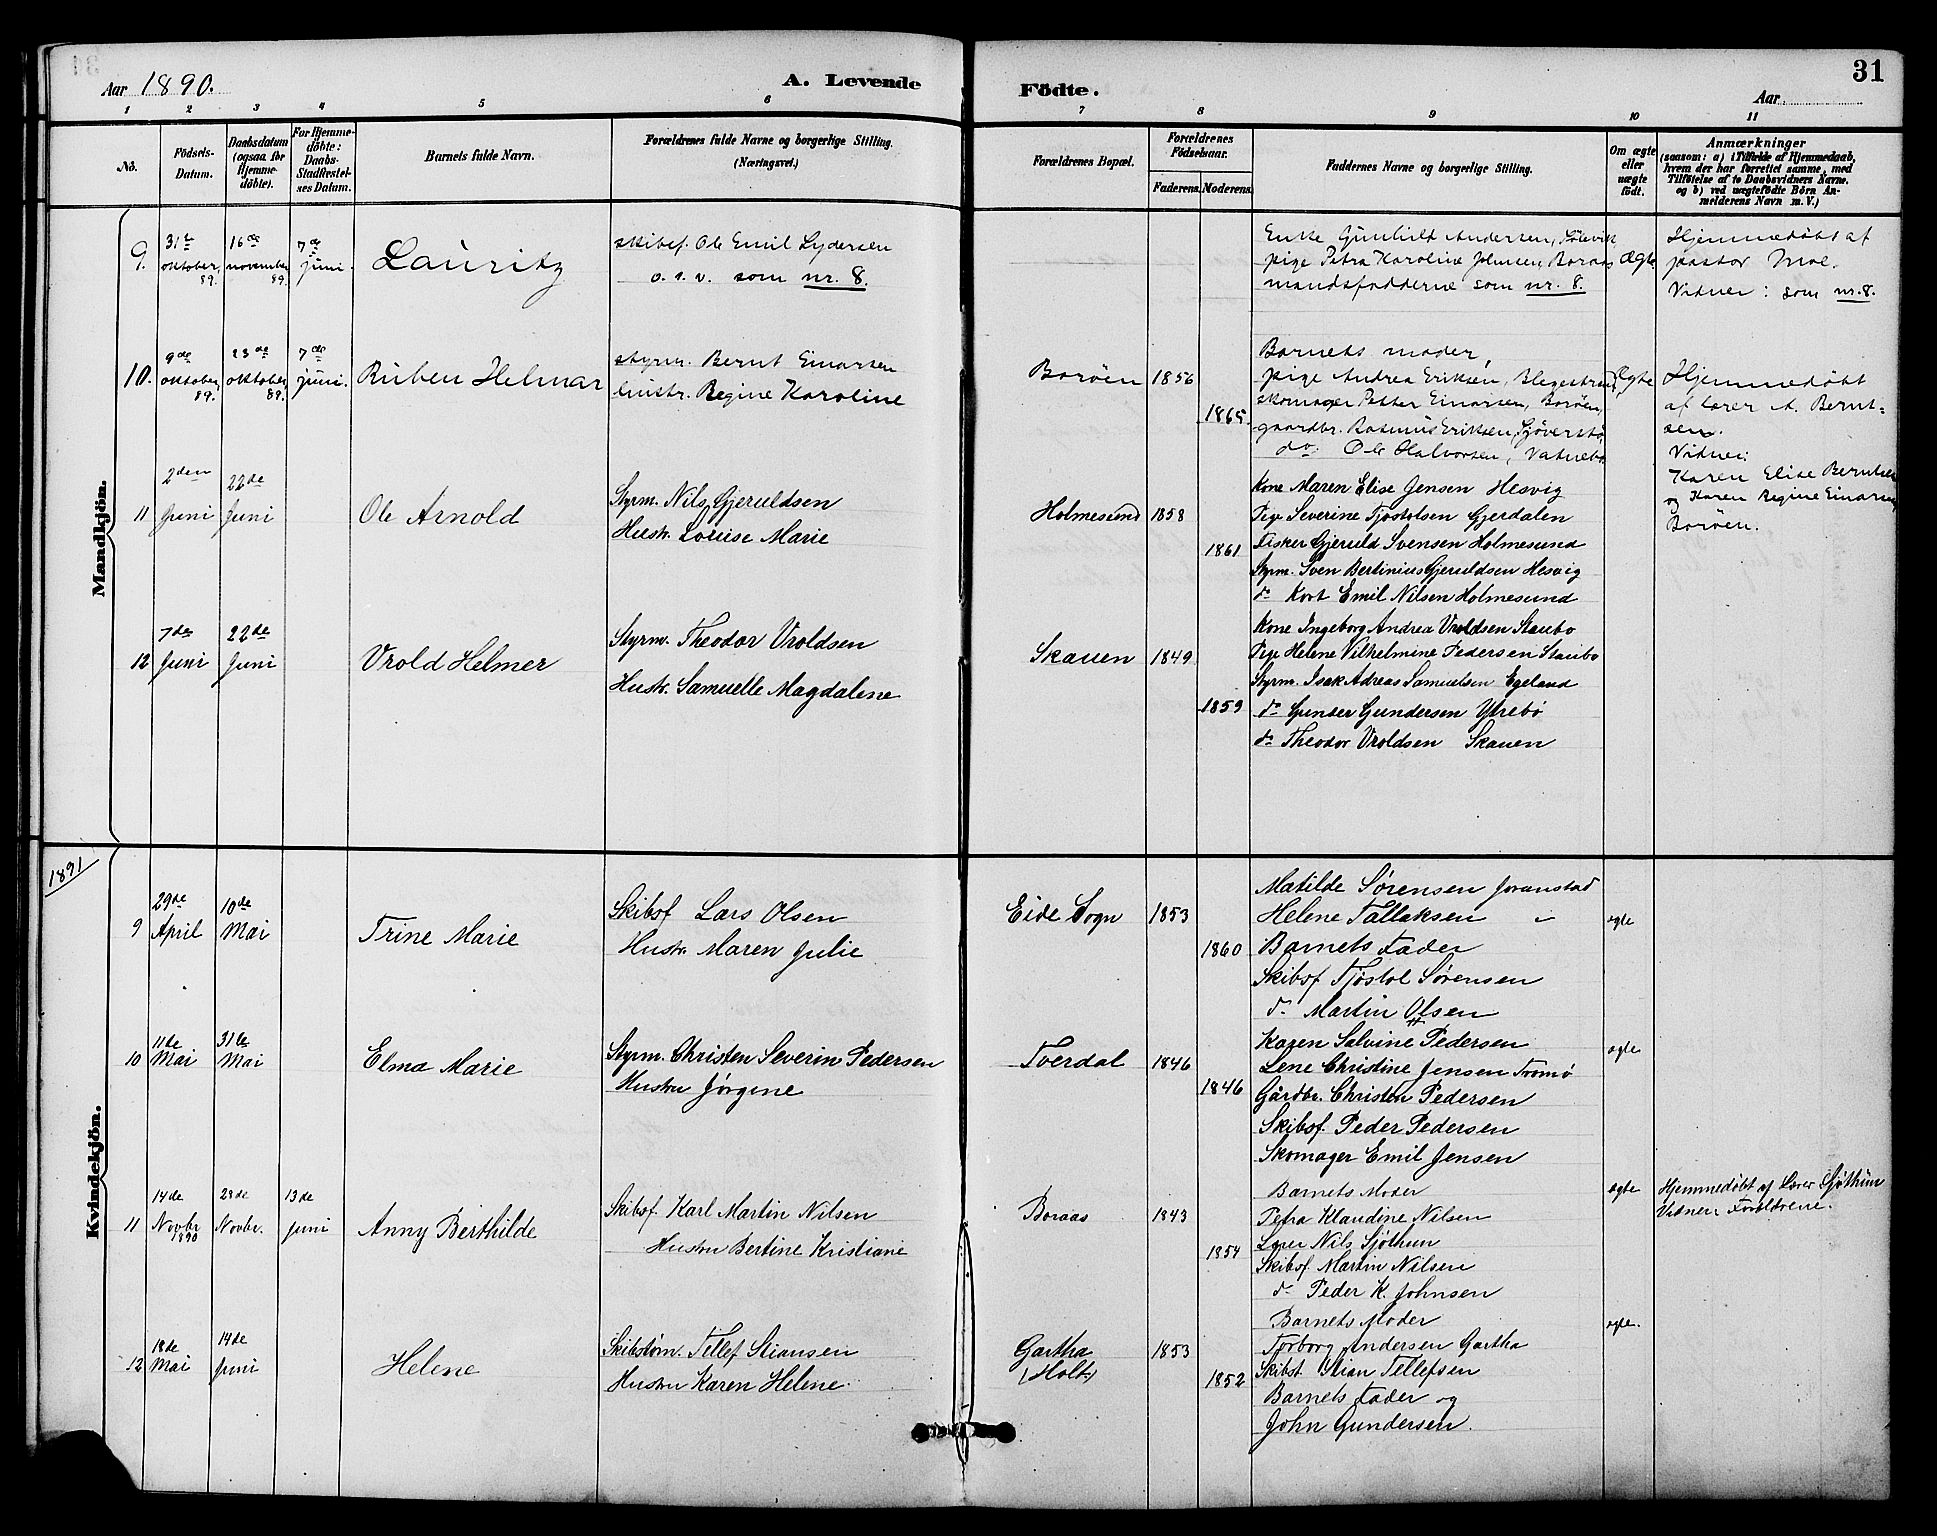 Aar 1890.
A. Levende Födte.
31
Aar
1 2 3 4 5 6 7 8 9 10 11
No.
Födsels-Datum.
Daabsdatum (ogsaa for Hjemme-döbte).
For Hjemme-döbte: Daabs-Stadfestel-ses Datum.
Barnets fulde Navn.
Forældrenes fulde Navne og borgerlige Stilling.
(Næringsvei.)
Forældrenes Bopæl.
Forældrenes Födselsaar.
Faderens. Moderens.
Faddernes Navne og borgerlige Stilling.
Om ægte eller uægte födt.
Anmærkninger
(saasom: a) i Tilfælde af Hjemmedaab, hvem der har forrettet samme, med Tilföielse af to Daabsvidners Navne. og b) ved uægtefödte Börn An-melderens Navn m. V.)
Mandkjön.
9. 31te oktober, 89. 16de november 89. 7de juni.
Lauritz
skibsf. Ole Emil Lydersen
o. s. v. som nr. 8.
Enke Gunhild Andersen,
pige Petra Karoline Johnsen, Boraas
mandsfadderne som nr. 8.
Ægte
Hjemmedöbt af
pastor Moe.
Vidner: som nr. 8.
10. 9de oktober, 89. 23de oktober 89. 7de juni.
Ruben Helmar
styrm. Bernt Einarsen
hustr. Regine Karoline
Boröen 1856
1865
Barnets moder,
pige Andrea Eriksen,
skomager Petter Einarsen, Boröen,
gaardbr. Rasmus Eriksen,
do Ole Halvorsen, Vatnebo
Ægte
Hjemmedöbt
af lærer A. Bernt-
sen.
Vidner:
Karen Elise Berntsen
og Karen Regine Einarsen
Boröen.
11 2den Juni 22de Juni
Ole Arnold
Styrm. Nils Gjeruldsen
Hustr. Louise Marie
Holmesund 1858
1861
Kone Maren Elise Jensen Hesvig
Pige Severine Tjostolsen Gjerdalen
Fisker Gjeruld Svensen Holmesund
Styrm. Sven Bertinius Gjeruldsen Hesvig
do Kort Emil Nilsen Holmesund
12 7de Juni 22de Juni
Vrold Helmer
Styrm. Theodor Vroldsen
Hustr. Samuelle Magdalene
Skauen 1849
1859
Kone Ingeborg Andrea Vroldsen Staubo
Pige Helene Vilhelmine Pedersen Staubo
Styrm. Isak Adreas Samuelsen Egeland
do Gunder Gundersen Ytrebö
do Theodor Vroldsen Skauen
1891
Kvindekjön.
9 29de April 10de Mai
Trine Marie
Skibsf Lars Olsen
Hustr. Maren Julie
Eide Sogn 1853
1860
Matilde Sørensen Joranstad
Helene Tallaksen "
Barnets Fader
Skibsf Tjøstol Sørensen
do Martin Olsen
ægte
10 11de Mai 31te Mai
Elma Marie
Styrm. Christen Severin Pedersen
Hustru Jørgene
Tverdal 1846
1846
Karen Salvine Pedersen
Lene Christine Jensen Tromø
Gårdbr. Christen Pedersen
Skibsf. Peder Pedersen
Skomager Emil Jensen
ægte
11 14de Novbr 1890 23de Novbr. 13de Juni
Anny Berthilde
Skibsf. Karl Martin Nilsen
Hustru Bertine Kristiane
Boraas 1843
1854
Barnets Moder
Petra Klaudine Nilsen
Lærer Nils Sjøthun
Skibsf. Martin Nilsen
do Peder K. Johnsen
ægte
Hjemmedøbt af Lærer Sjøthun
Vidner: Forældrene.
12 18de Mai 14de Juni
Helene
Skibstøm. Tellef Stiansen
Hustru Karen Helene
Gartha
(Holt) 1853
1852
Barnets Moder
Torborg Andersen Gartha
Skibst. Stian Tellefsen
Barnets Fader og
John Gundersen.
ægte.